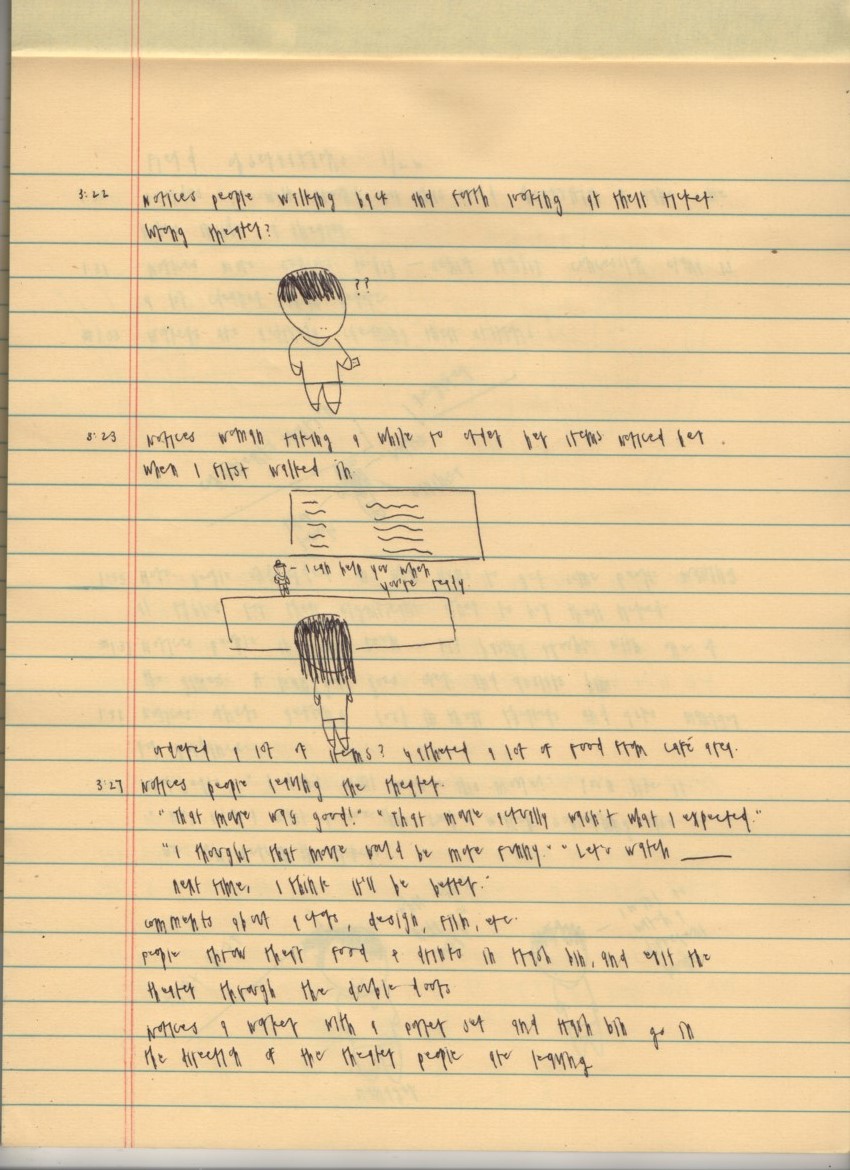 3:22 Notices people walking back and forth looking at their ticket.
Wrong theater?
??
3:23 Notices woman taking a while to order her items noticed her
when I first walked in
- I can help you when
you're ready
ordered a lot of items? Gathered a lot of food from café area.
3:27 Notices people leaving the theater.
"That movie was good!" "That movie actually wasn't what I expected."
"I thought that movie would be more funny." "Let's watch ____
next time, I think it'll be better."
comments about actors, design, film, etc.
people throw their food & drinks in trash bin, and exit the
theater through the double doors
Notices a worker with a and trash bin go in
the direction of the theater people are leaving